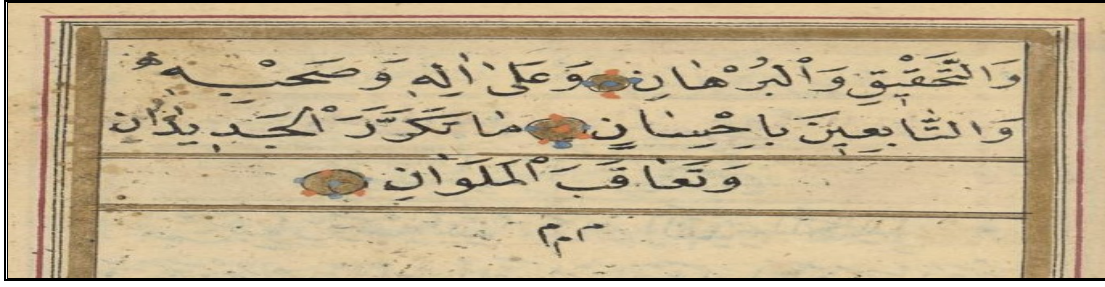 وَالتَّحْقِيْقِ وَالْبُرْهَانِ وَعَلٰى اٰلِهِ وَصَحْبِهِ
وَالتَّابِعِينَ بِاِحْسَانٍ مَا تَكَرَّرَ الْجَدِيدَانِ
وَتَعَاقَبَ الْمَلَوَانِ
م م م